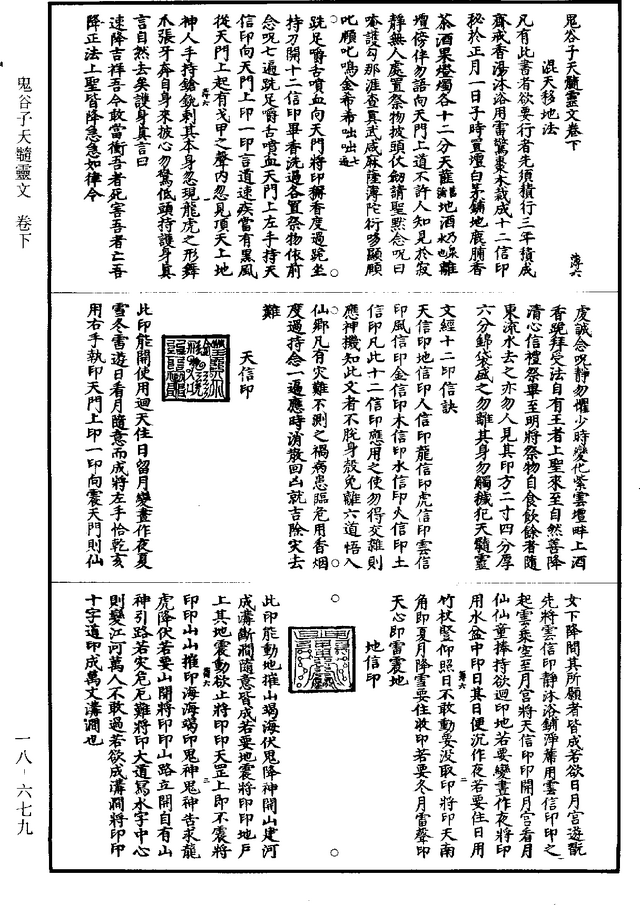 鬼谷子天髓靈文卷下
混天移地法
凡有此書者欲要行者先須積行三年積成
齋戒香湯沐浴用雷驚棗木裁成十二信印
祕於正月一日子時置壇白茅鋪地鹿脯香
茶酒果燈燭各十二分天蓰地酒奶也離
壇傍伴勿語向天門上道不許人知見於寂
靜無人處置祭物披頭伏劒請聖黙念呪曰
唵護勾那涯查真武咸麻薩溥陀衍哆顯顯
叱順叱鳴金希希咄咄七遍
跣足嚼舌噴血向天門將印獬香度過跪坐
持刀開十二信印畢香洗過各置祭物依前
念呪七遍跣足嚼舌噴血天門上左手持天
信印向天門上印一印言道速疾當有黒風
從天門上起有戈甲之聲内忽見頂天上地
神人手持鎗銃刺其本身忽現龍虎之形舞
爪張牙奔自身來披心勿驚低頭持護身真
言自然去矣護身真言曰
速降吉祥吾今敢當衝吾者死害吾者亡吾
降正法上聖皆降急急如律令
鬼谷子天髓靈文 卷下
虔誠念呪靜勿懼少時變化紫雲壇畔上酒
香跪拜受法自有王者上聖來至自然善降
清心信禮祭畢至明將祭物自食飲餘者隨
東流水去之亦勿人見其印方二寸四分厚
六分錦袋盛之勿離其身勿觸穢犯天髓靈
文經十二印信訣
天信印地信印人信印龍信印虎信印雲信
印風信印金信印木信印水信印火信印土
信印凡此十二信印應用之使勿得交雜則
應神機知此文者不脫身殼免離六道悟入
仙鄉凡有災難不測之禍病患臨危用香烟
度過持念一遍應時消散回凶就吉除灾去
難
天信印
此印能開使用迴天住日留月變晝作夜夏
雪冬雷遊日看月隨意而成將左手恰乾亥
用右手執印天門上印一印向震天門則仙
女下降問其所願者皆成若欲日月宫遊翫
先將雲信印靜沐浴鋪淨蓆用雲信印印之
起雲乘空至月宫將天信印印開月宫看月
仙仙童捧持欲迴印地若要變晝作夜將印
用水盆中印日其日便沉作夜若要住日用
竹杖竪仰照日不敢動要没取印將印天南
角即夏月降雪要住收印若要冬月雷聲印
天心即雷震地
地信印
此印能動地摧山竭海伏鬼降神開山建河
成溝斷澗隨意皆成若要地震將印印地戶
上其地震動欲止將印印天罡上即不震將
印印山山摧印海海竭印鬼神鬼神告求龍
虎降伏若要山開將印印山路立開自有山
神引路若灾危厄難將印大道寫水字中心
則變江河萬人不敢過若欲成溝澗將印印
十字道印成萬丈溝澗也
一八－六七九